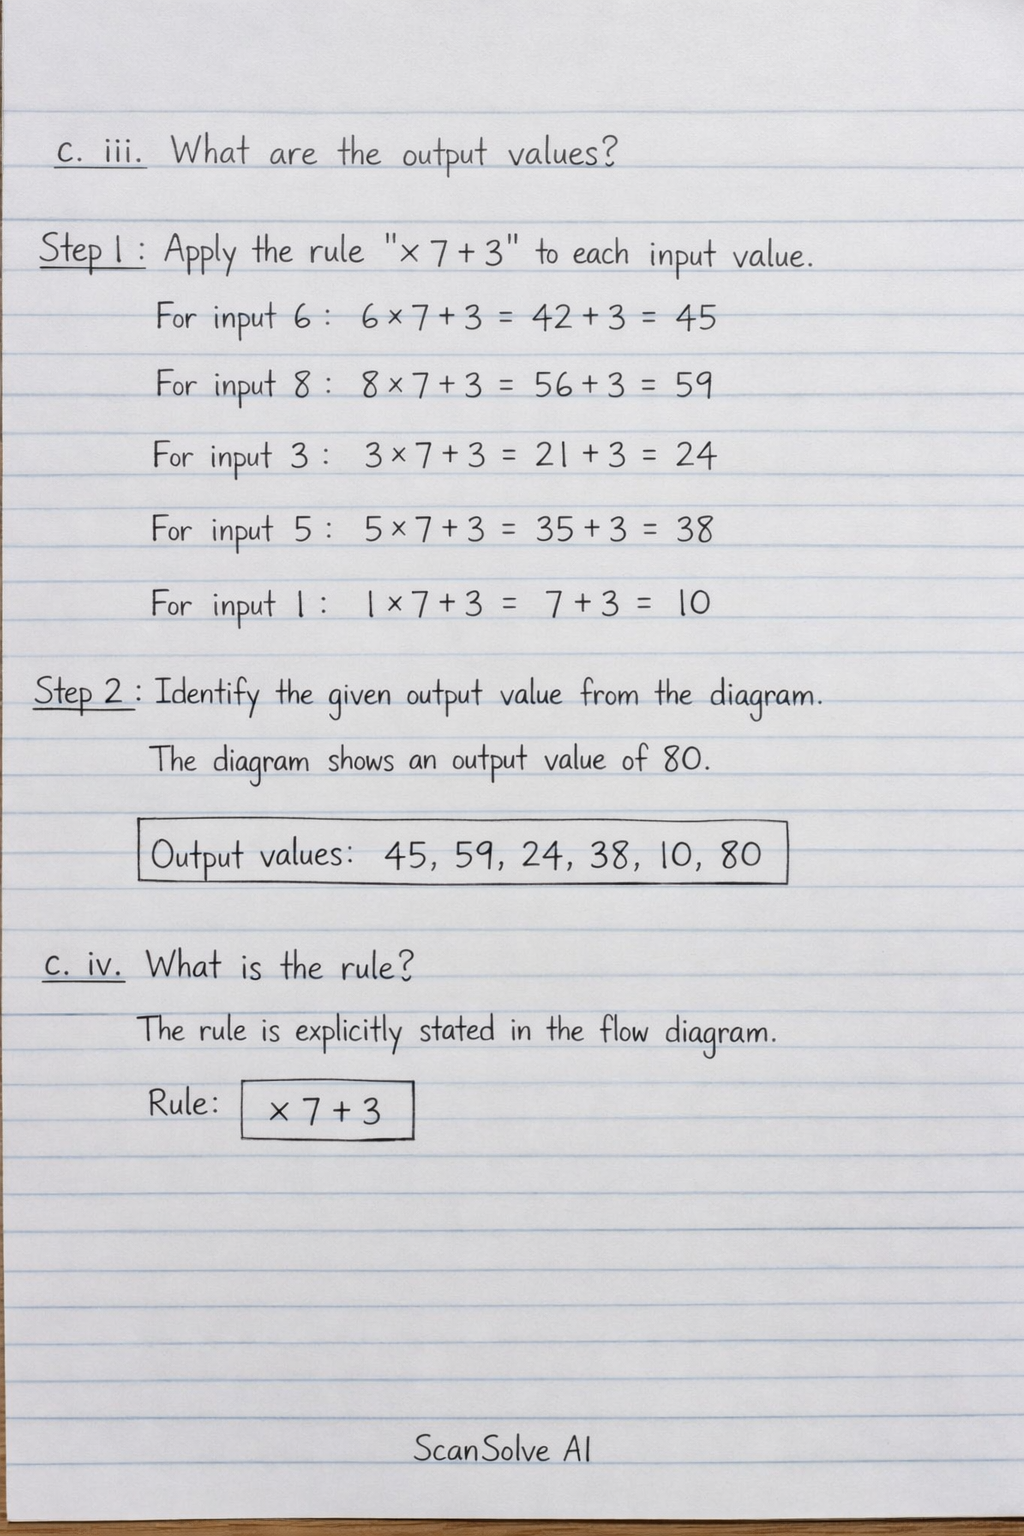 c. iii. What are the output values?
Step 1: Apply the rule "× 7 + 3" to each input value.
For input 6: 6 × 7 + 3 = 42 + 3 = 45
For input 8: 8 × 7 + 3 = 56 + 3 = 59
For input 3: 3 × 7 + 3 = 21 + 3 = 24
For input 5: 5 × 7 + 3 = 35 + 3 = 38
For input 1: 1 × 7 + 3 = 7 + 3 = 10
Step 2: Identify the given output value from the diagram.
The diagram shows an output value of 80.
Output values: 45, 59, 24, 38, 10, 80
c. iv. What is the rule?
The rule is explicitly stated in the flow diagram.
Rule: × 7 + 3
ScanSolve AI